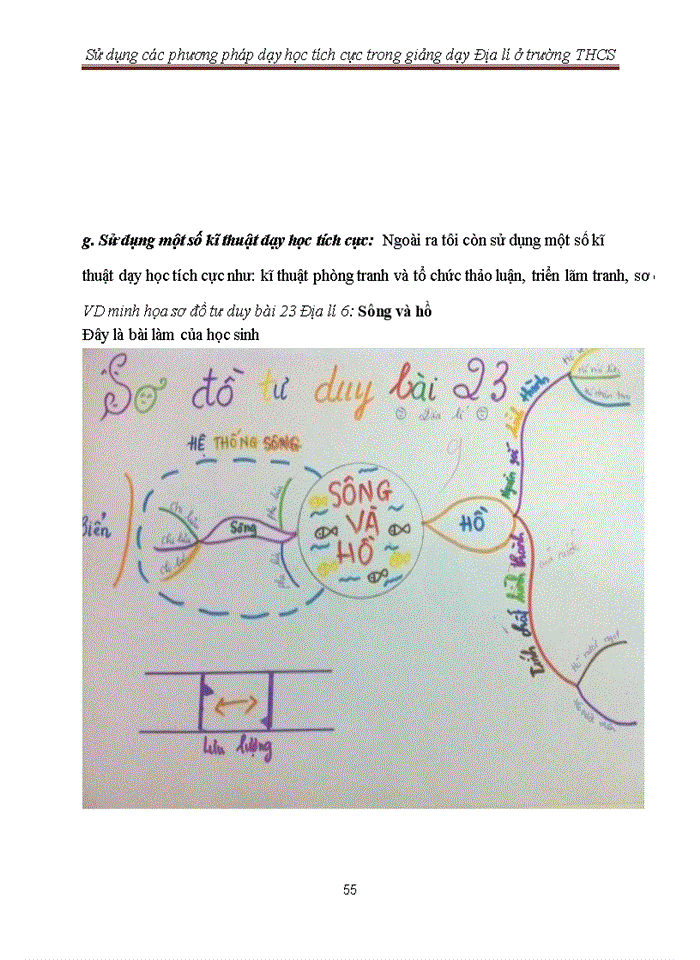 Sử dụng các phương pháp dạy học tích cực trong giảng dạy Địa lí ở trường THCS
g. Sử dụng một số kĩ thuật dạy học tích cực: Ngoài ra tôi còn sử dụng một số kĩ
thuật dạy học tích cực như: kĩ thuật phòng tranh và tổ chức thảo luận, triển lãm tranh, sơ
VD minh họa sơ đồ tư duy bài 23 Địa lí 6: Sông và hồ
Đây là bài làm của học sinh
Sơ đồ tư duy bài 23
HỆ THỐNG SÔNG
Biển
Chi lưu
Chi lưu
Chi lưu
Sông
Phụ lưu
Phụ lưu
SÔNG
VÀ
HỒ
HỒ
Nguồn gốc hình thành
Tính chất hình thành
Hồ nước ngọt
Hồ nước mặn
Lưu lượng
55